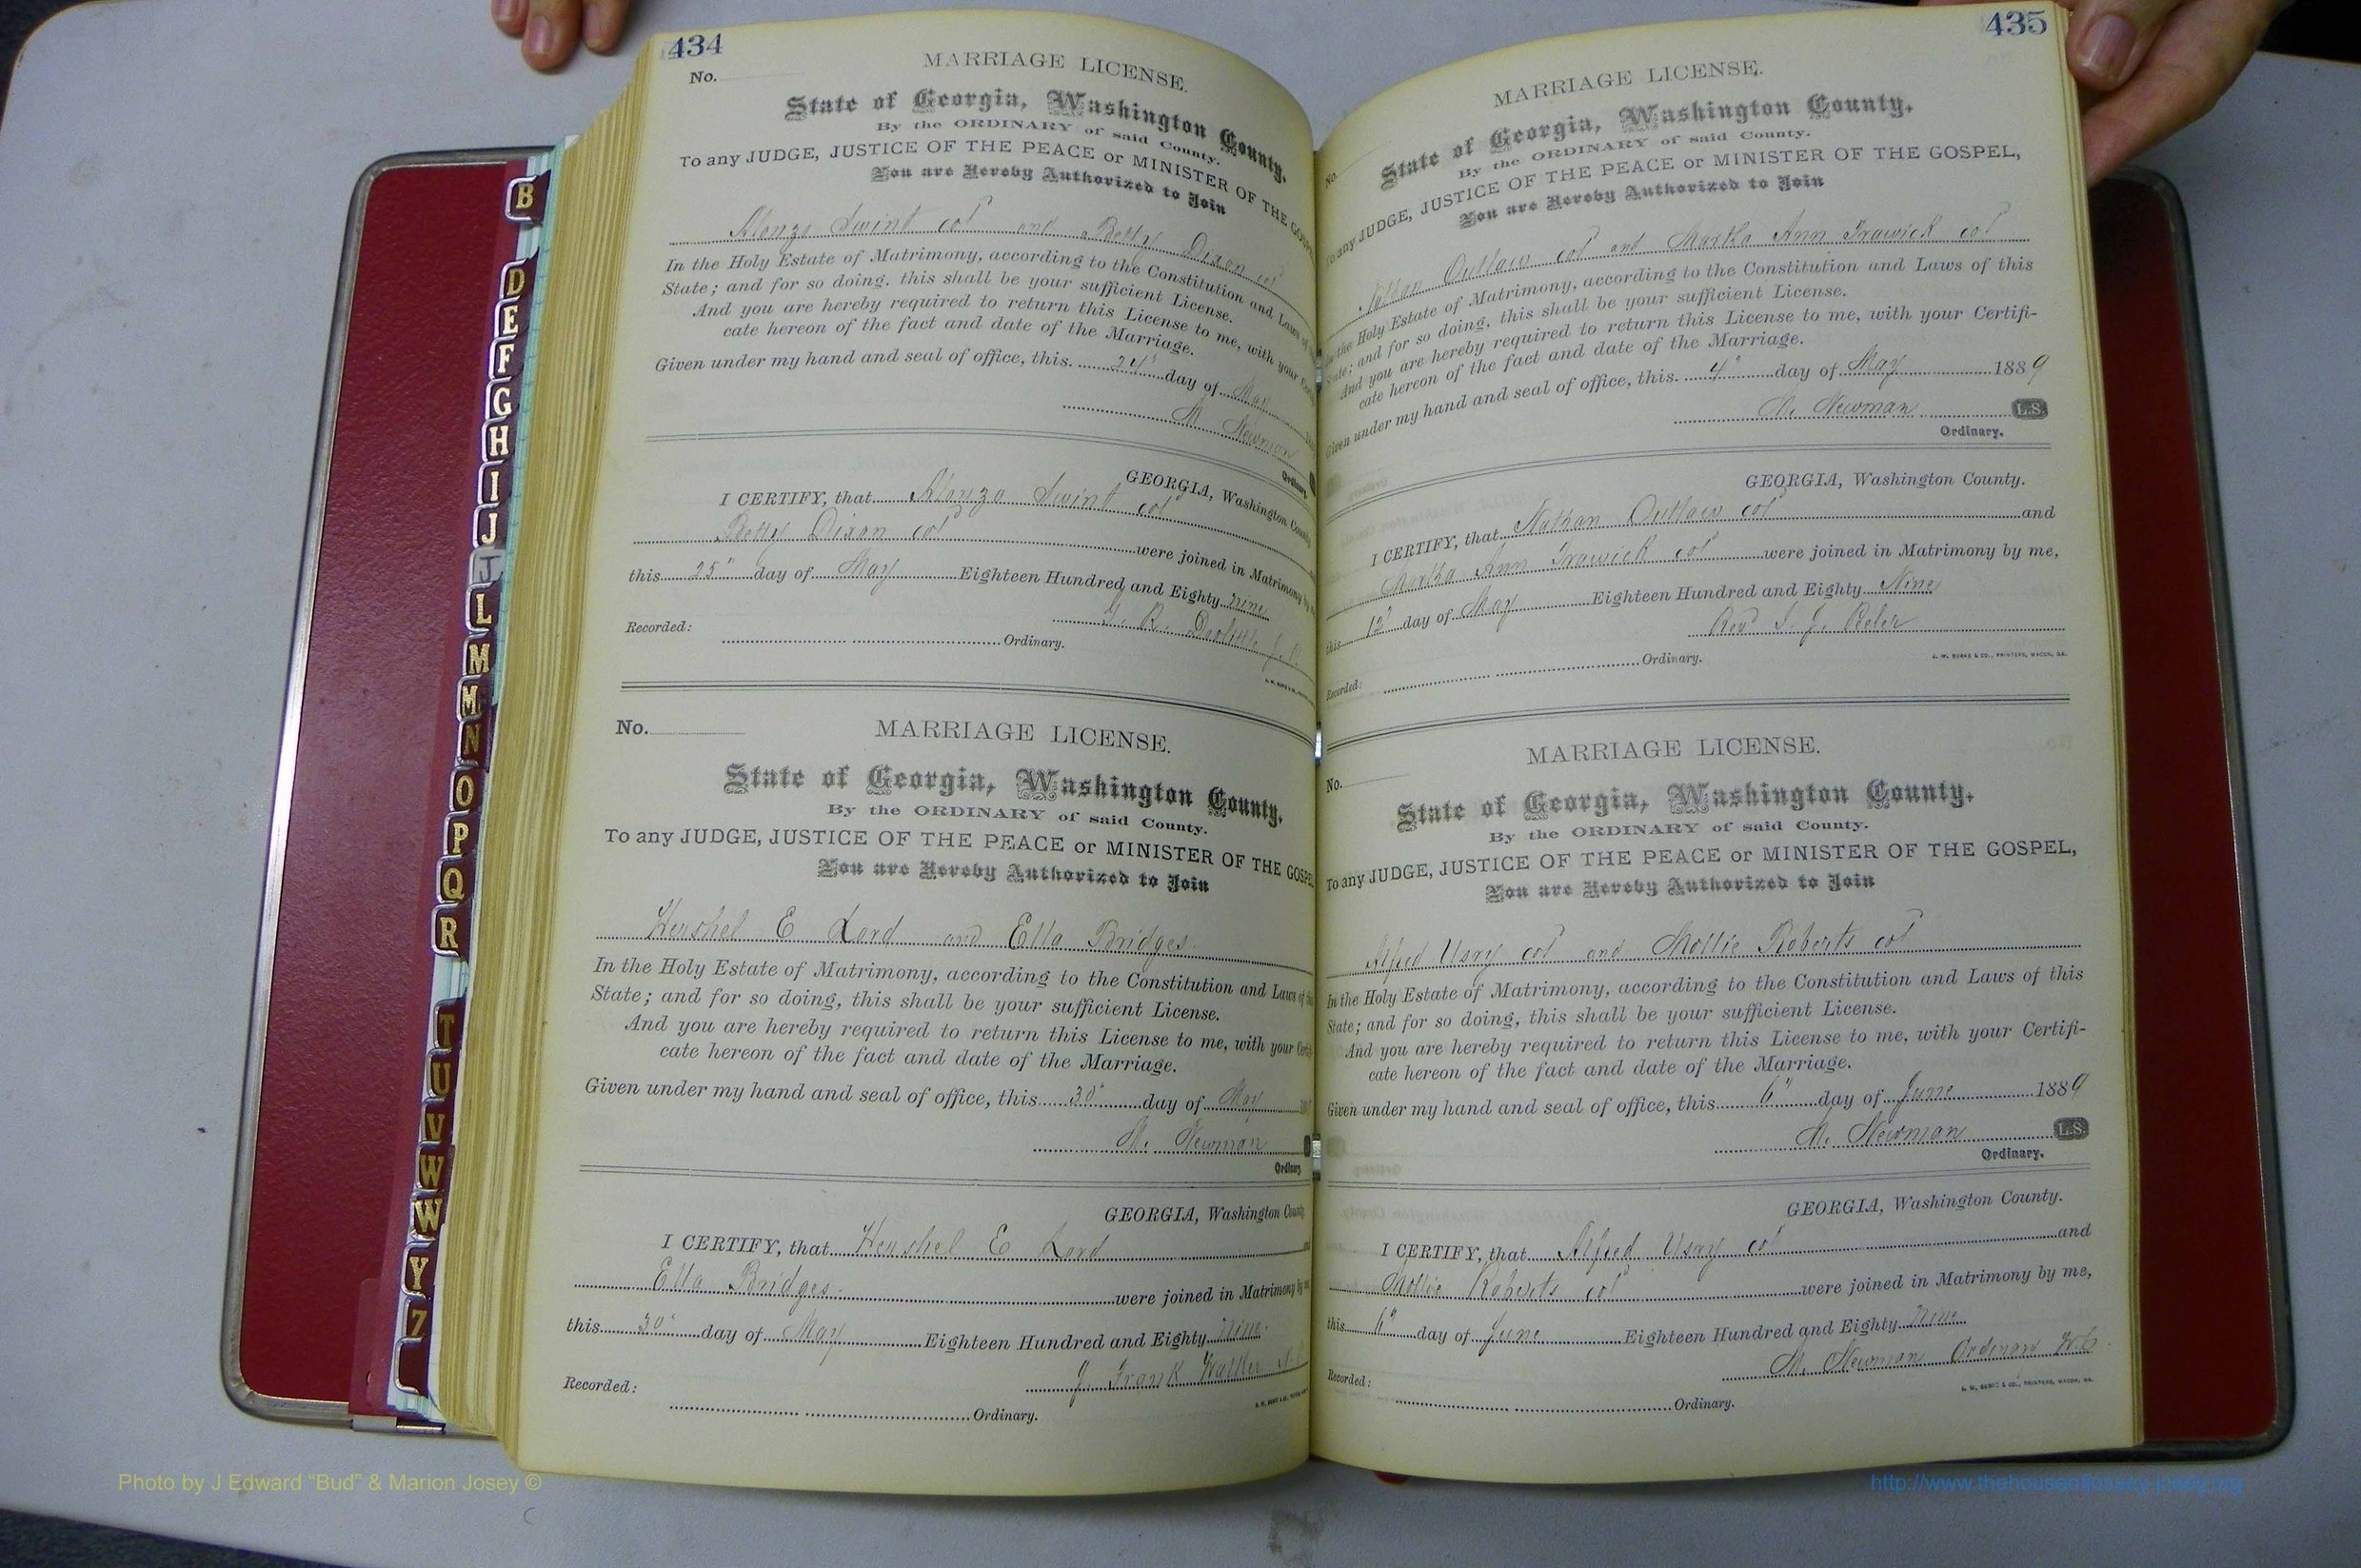 434
No.
MARRIAGE LICENSE.
State of Georgia, Washington County.
By the ORDINARY of said County.
To any JUDGE, JUSTICE OF THE PEACE or MINISTER OF THE GOSP
You are Hereby Authorized to Join
Alonzo Swint col and Betty Dixon col
In the Holy Estate of Matrimony, according to the Constitution and Laws of
State; and for so doing, this shall be your sufficient License.
And you are hereby required to return this License to me, with your
cate hereon of the fact and date of the Marriage.
Given under my hand and seal of office, this 24" day of May
M. Newman
Ordinary.
GEORGIA, Washington County
I CERTIFY, that Alonzo Swint col
Betty Dixon col were joined in Matrimony by
this 25" day of May Eighteen Hundred and Eighty nine
R. Doolittle J. P.
Recorded: Ordinary.
No.
MARRIAGE LICENSE.
State of Georgia, Washington County.
By the ORDINARY of said County.
To any JUDGE, JUSTICE OF THE PEACE or MINISTER OF THE GOSPEL
You are Hereby Authorized to Join
Henshel E Lord and Ella Bridges
In the Holy Estate of Matrimony, according to the Constitution and Laws of
State; and for so doing, this shall be your sufficient License.
And you are hereby required to return this License to me, with your Certi
cate hereon of the fact and date of the Marriage.
Given under my hand and seal of office, this 30" day of May
M. Newman
Ordinary
GEORGIA, Washington County
I CERTIFY, that Henshel E Lord
Ella Bridges were joined in Matrimony by
this 30" day of May Eighteen Hundred and Eighty nine
J. Frank Walker
Recorded:
Ordinary.
435
No.
MARRIAGE LICENSE.
State of Georgia, Washington County.
By the ORDINARY of said County.
To any JUDGE, JUSTICE OF THE PEACE or MINISTER OF THE GOSPEL,
You are Hereby Authorized to Join
Nathan Outlaw col and Martha Ann Trawick col
In the Holy Estate of Matrimony, according to the Constitution and Laws of this
State; and for so doing, this shall be your sufficient License.
And you are hereby required to return this License to me, with your Certifi-
cate hereon of the fact and date of the Marriage.
Given under my hand and seal of office, this 4" day of May 1889
M. Newman L.S.
Ordinary.
GEORGIA, Washington County.
I CERTIFY, that Nathan Outlaw col and
Martha Ann Trawick col were joined in Matrimony by me,
this 12" day of May Eighteen Hundred and Eighty Nine
Rev. Peeler
Recorded: Ordinary.
J. W. BURKE & CO., PRINTERS, MACON, GA.
MARRIAGE LICENSE.
No.
State of Georgia, Washington County.
By the ORDINARY of said County.
To any JUDGE, JUSTICE OF THE PEACE or MINISTER OF THE GOSPEL,
You are Hereby Authorized to Join
Alfred Usry col and Mollie Roberts col
In the Holy Estate of Matrimony, according to the Constitution and Laws of this
State; and for so doing, this shall be your sufficient License.
And you are hereby required to return this License to me, with your Certifi-
cate hereon of the fact and date of the Marriage.
Given under my hand and seal of office, this 6" day of June 1889
M. Newman L.S.
Ordinary.
GEORGIA, Washington County.
I CERTIFY, that Alfred Usry col and
Mollie Roberts col were joined in Matrimony by me,
this 6" day of June Eighteen Hundred and Eighty nine
M. Newman Ordinary W.C.
Recorded:
Ordinary.
J. W. BURKE & CO., PRINTERS, MACON, GA.
B
D
E
F
G
H
I
J
J
L
M
M
N
O
P
Q
R
T
U
V
W
W
Y
Z
Photo by J Edward "Bud" & Marion Josey ©
http://www.thehouseofjossey-josey.org